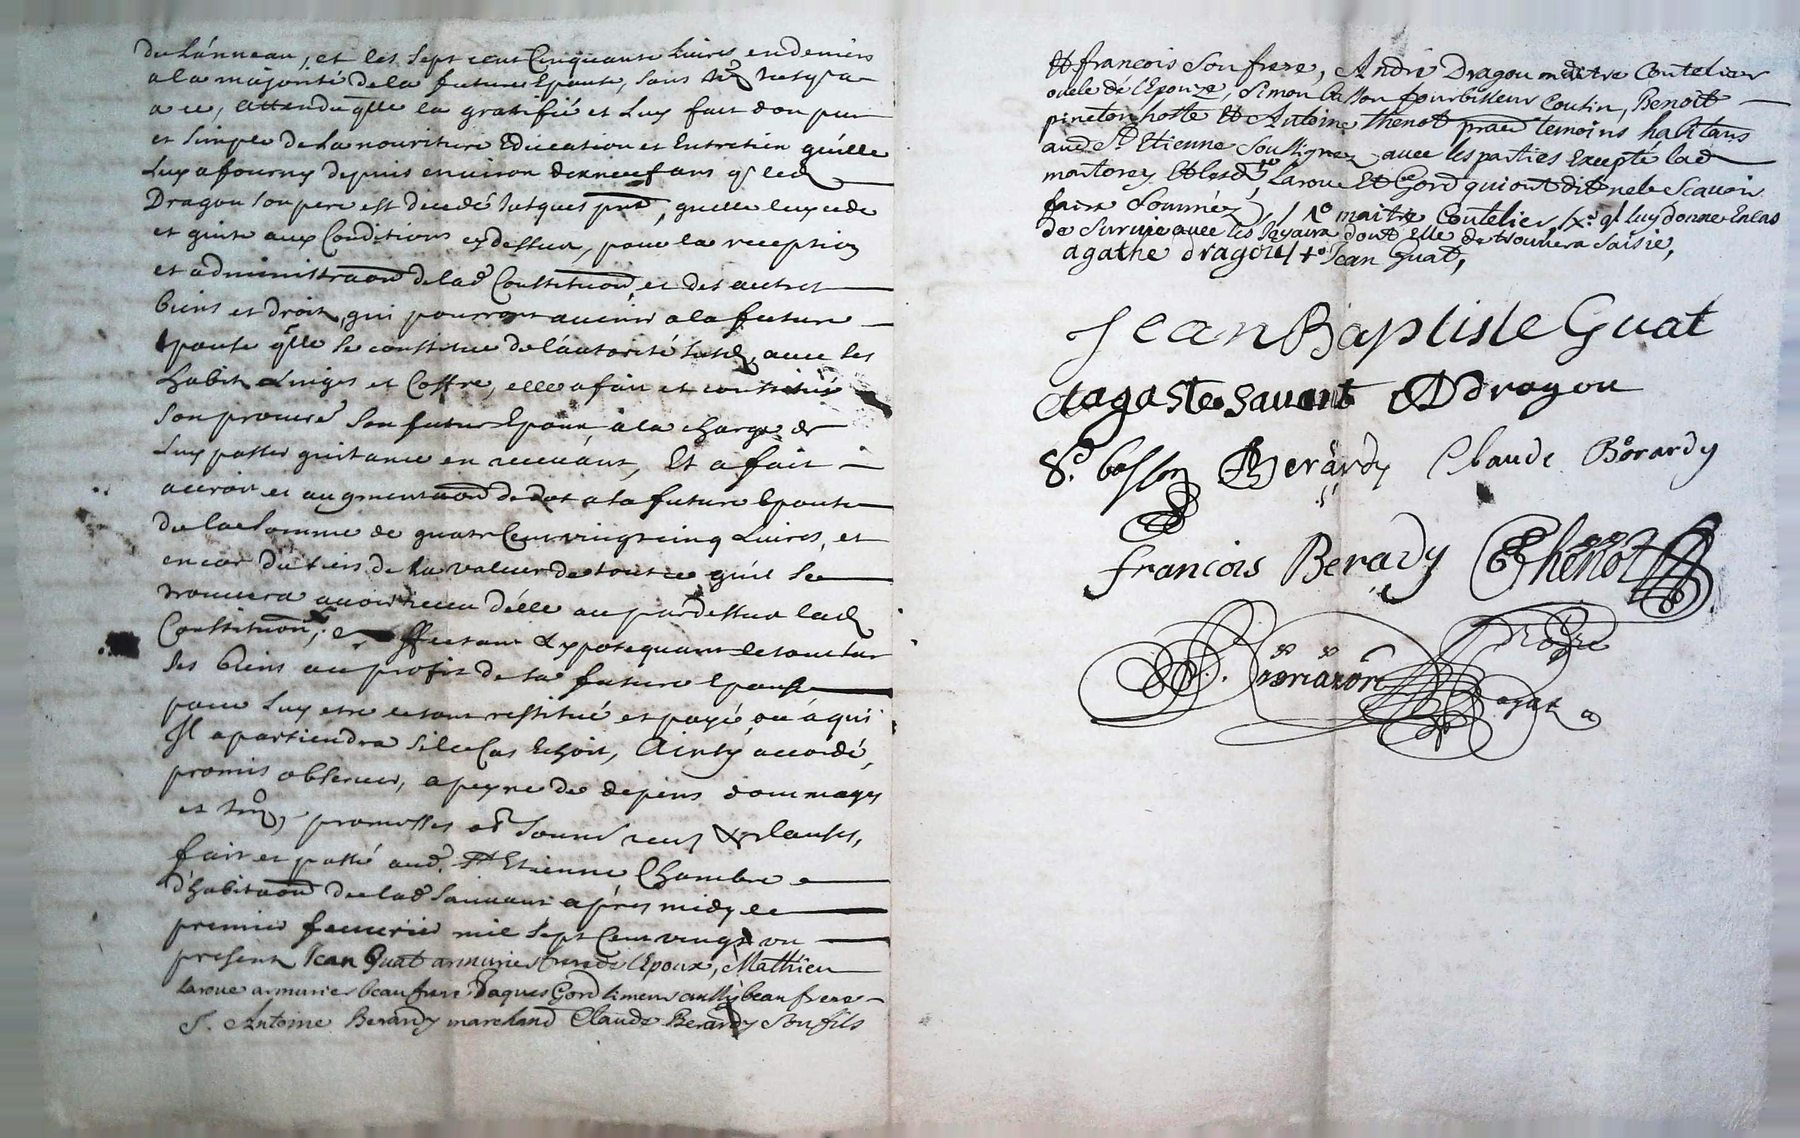 de Lánneau, et les sept cent Cinquante Livres en deniers
a la majorité de la future Epouse, sans jusqu'a
a ce, attendu qlle la gratifié et Luy fait don pur
et simple de La nouriture Education et Entretien qu'elle
Luy a fourny depuis environ dixneuf ans q led
Dragon son pere est decedé jusques pnt, quelle luy cede
et quite aux Conditions cydessus, pour la reception
et administraon de lad Constituon, et des autres
biens et droits, qui pourront auenir a la future
Epouse qlle se constitue de l'autorité susd, auec ses
habits Linges et Coffre, elle a fait et constitué
son procur son futur Epoux, a la charge de
Luy passer quitance en receuant, Et a fait
accroit et augmentaon de dot a la future Epouse
de la somme de quatre Cent vingt cinq Livres, et
encor du tiers de la valeur de tout ce qu'il se
trouuera auoir receu d'elle au pardessus lad
Constituon, affectant et ypotequant le tout sur
ses biens au profit de la future Epouse
pour Luy etre le tout restitué et payé, ou a qui
Il apartiendra si le Cas Echoit, Ainsy accordé,
promis obseruer, a peyne de depens dommages
et promesses clauses,
fait et passé aud St Etienne Chambre
d'habitaon de lad Sauuant aprés midy le
premier feuurier mil sept Cent vingt vn
presents Jean Guat armurier frere de l'Epoux, Mathieu
Laroue armurier beaufrere Jaques Gord aussy beaufrere
Sr. Antoine Berardy marchand Claude Berardy son fils
Et francois son frere, André Dragon maitre Coutelier
oncle de l'Epouze, Simon basson fourbisseur Cousin, Benoit
pineton hoste Et Antoine Thenot temoins habitans
aud St Etienne soussignez auec les parties Excepté lad
montorey Et lesd Laroue Et Gord qui ont dit ne le Scauoir
faire Sommés, / 1º maitre Coutelier, / x.º ql luy donne En cas
de Suruie auec les Joyaux dont elle se trouuera Saisie,
agathe dragon / +º Jean Guat,
Jean Baptiste Guat
agaste sauant AD dragon
S. basson ABerardy Claude Berardy
francois Berady Thenot